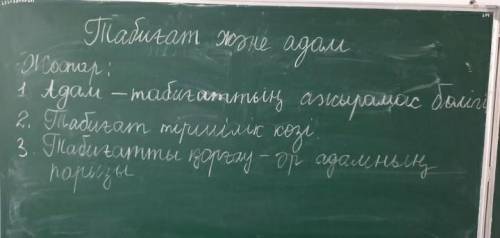 Табиғат және адам
Жоспар:
1. Адам – табиғаттың ажырамас бөлігі
2. Табиғат тіршілік көзі
3. Табиғатты қорғау – әр адамның
парызы